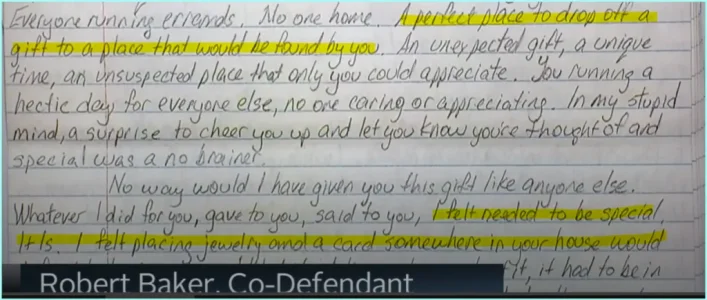 Everyone running errands. No one home. A perfect place to drop off a
gift to a place that would be found by you. An unexpected gift, a unique
time, an unsuspected place that only you could appreciate. You running a
hectic day for everyone else, no one caring or appreciating. In my stupid
mind, a surprise to cheer you up and let you know you're thought of and
special was a no brainer.
No way would I have given you this gift like anyone else.
Whatever I did for you, gave to you, said to you, I felt needed to be special.
It Is. I felt placing jewelry and a card somewhere in your house would
it, it had to be in
Robert Baker, Co-Defendant